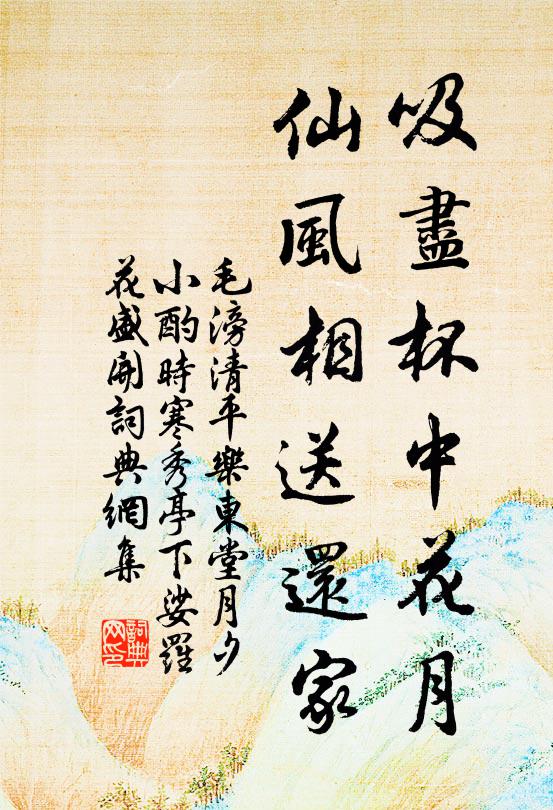 吸盡杯中花月
仙風相送還家
毛滂清平樂東堂月夕
小酌時寒秀亭下娑羅
花盛開詞典網集
詞典
网印